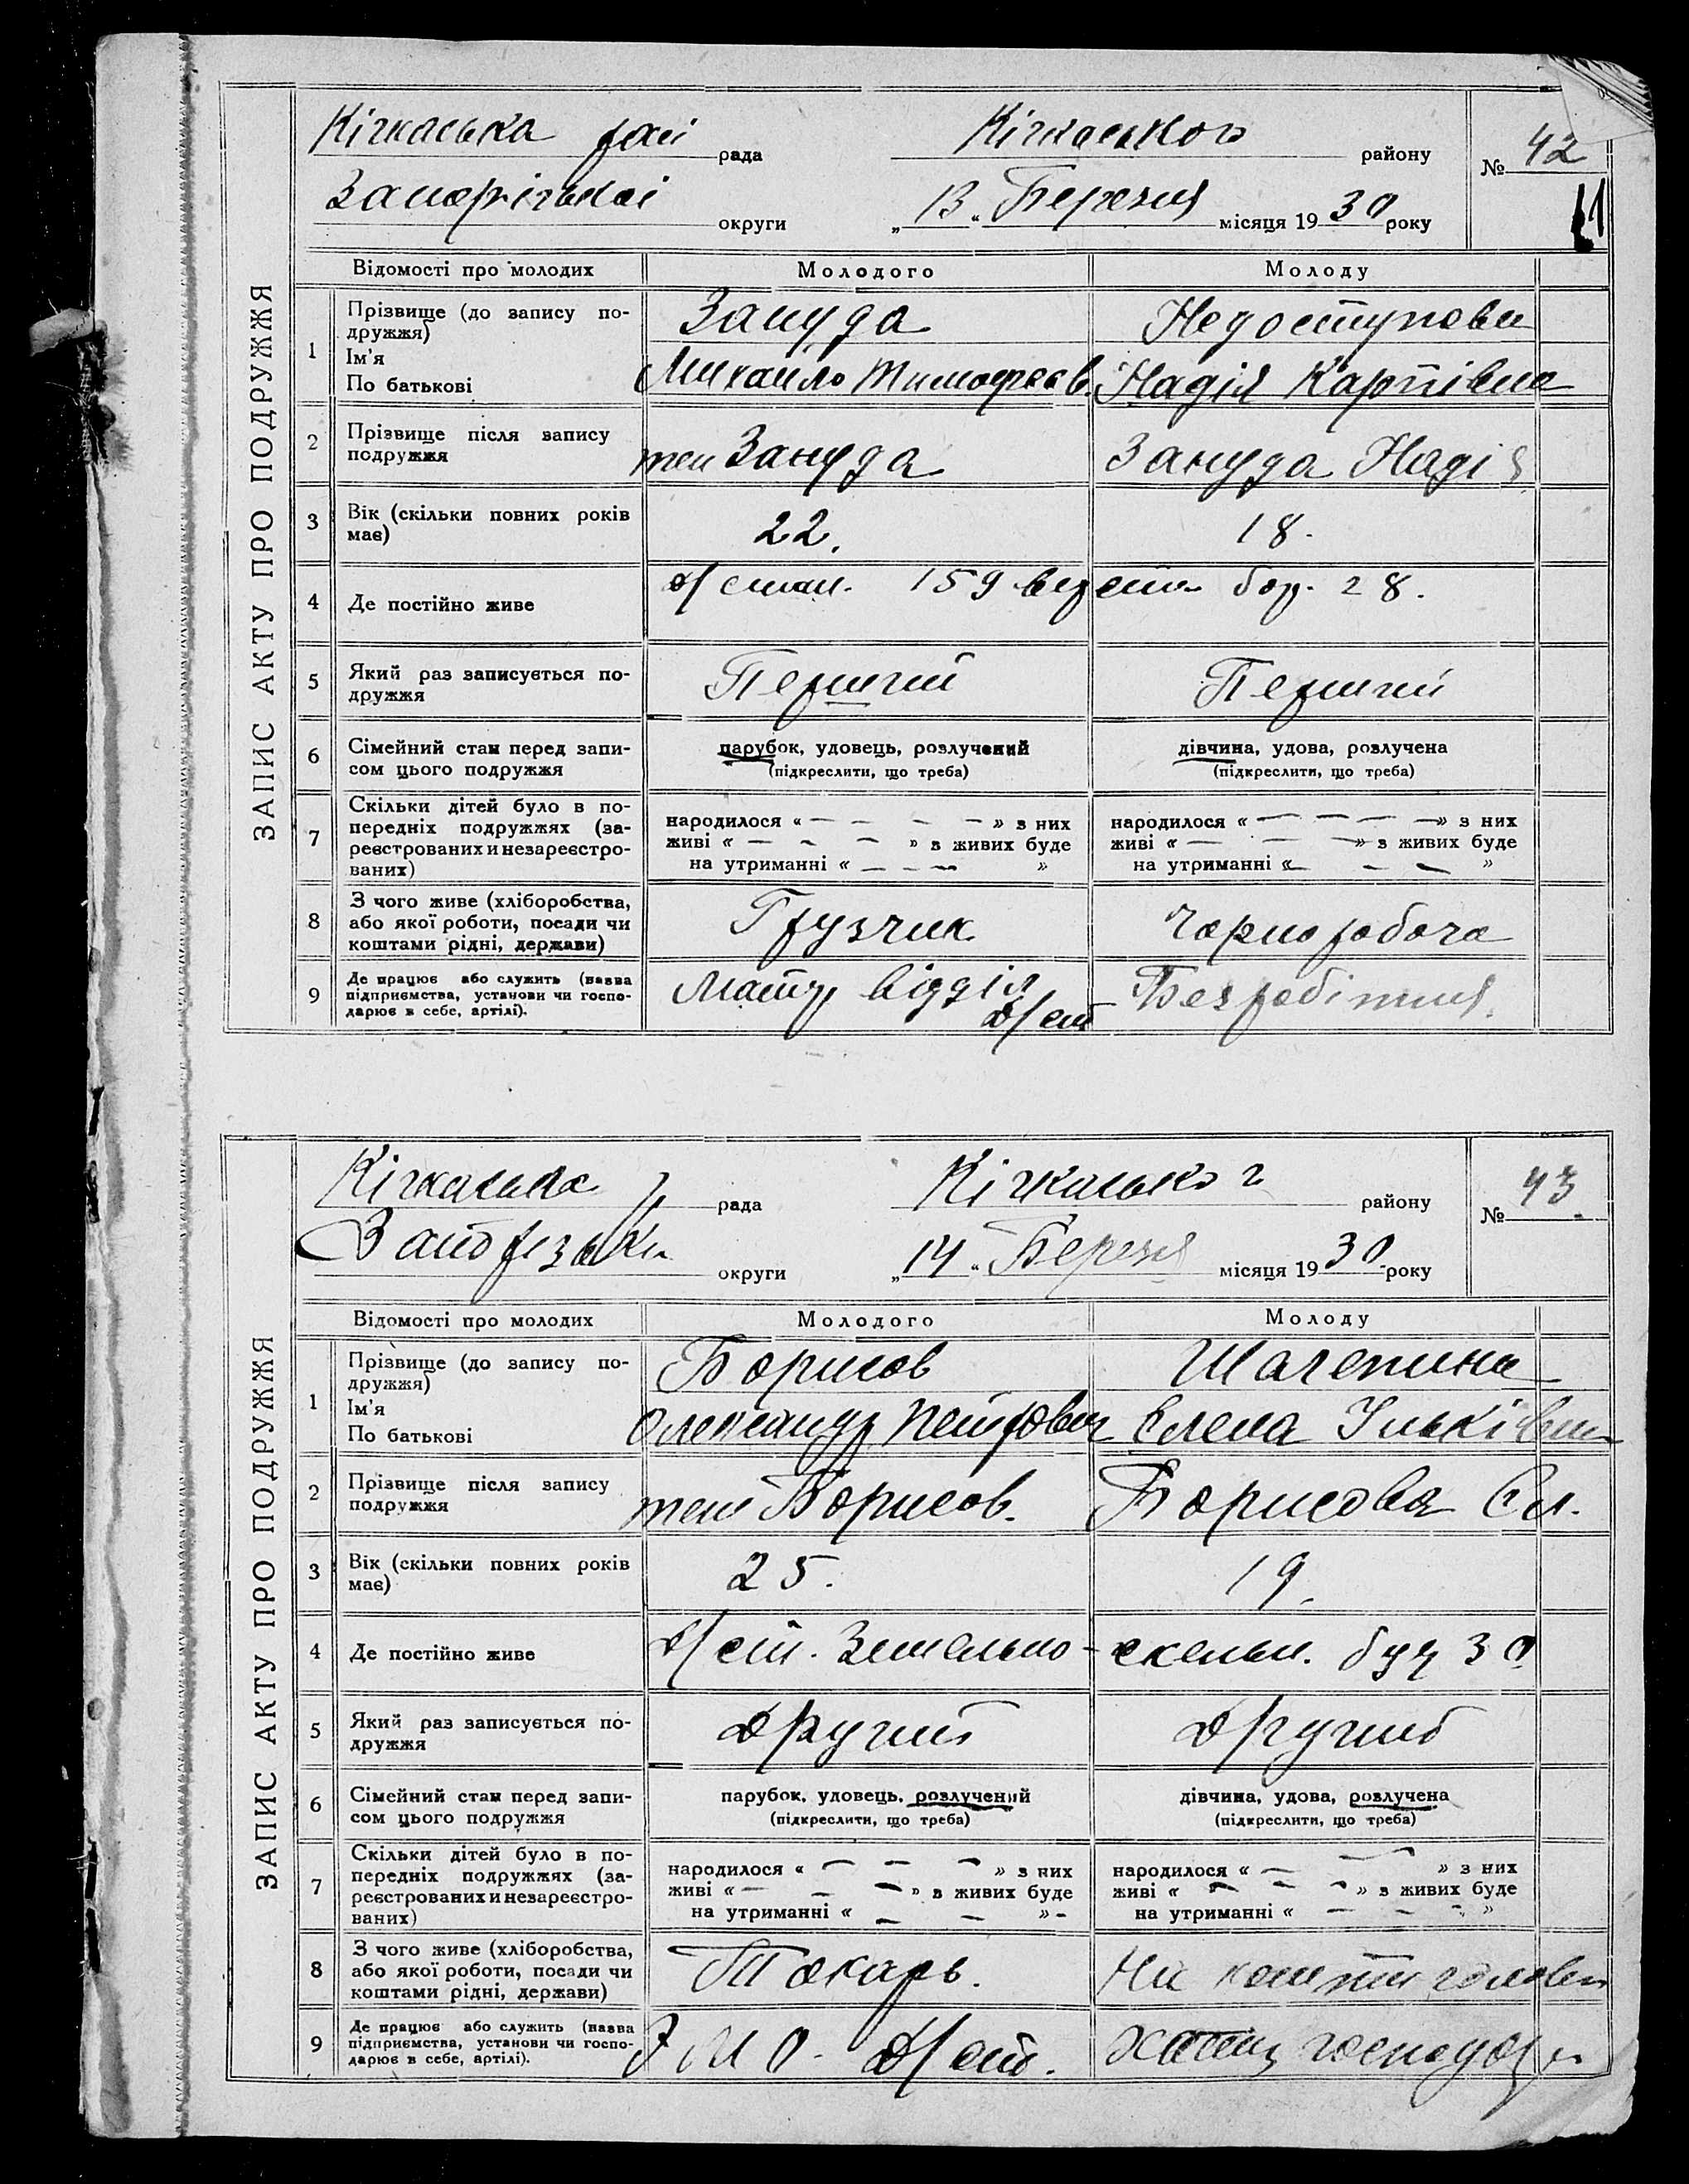 ЗАПИС АКТУ ПРО ПОДРУЖЖЯ
Кічкаська рай рада Кічкаського району № 42
Запорізької округи „13“ Березня місяця 1930 року
Відомості про молодих Молодого Молоду
1 Прізвище (до запису по-
дружжя) Зануда Недоступова
Ім'я
По батькові Михайло Тимофеев. Надія Карпівна
2 Прізвище після запису
подружжя теж Зануда Зануда Надія
3 Вік (скільки повних років
має) 22. 18.
4 Де постійно живе Д/стан. 159 верста бар. 28.
5 Який раз записується по-
дружжя Перший Перший
6 Сімейний стан перед запи-
сом цього подружжя парубок, удовець, розлучений дівчина, удова, розлучена
(підкреслити, що треба) (підкреслити, що треба)
7 Скільки дітей було в по-
передніх подружжях (за-
реєстрованих и незареєстро-
ваних)
народилося « — — — — » з них народилося « — — — — » з них
живі « — — — » з живих буде живі « — — » з живих буде
на утриманні « — — — » на утриманні « — — — »
8 З чого живе (хліборобства,
або якої роботи, посади чи
коштами рідні, держави) Грузчик Чорноробоча
9 Де працює або служить (назва
підприємства, установи чи госпо-
дарює в себе, артілі). Матер відділ Безробітня.
Д/ст
ЗАПИС АКТУ ПРО ПОДРУЖЖЯ
Кічкаська рада Кічкаськог району № 43.
округи „14“ Березня місяця 1930 року
Відомості про молодих Молодого Молоду
1 Прізвище (до запису по-
дружжя) Борисов
Ім'я
По батькові Олександр Петрович Елена Ільківна
2 Прізвище після запису
подружжя теж Борисов. Борисова Ел.
3 Вік (скільки повних років
має) 25. 19.
4 Де постійно живе Д/ст. Земельно-скельн. буд 30
5 Який раз записується по-
дружжя Другий Другий
6 Сімейний стан перед запи-
сом цього подружжя парубок, удовець, розлучений дівчина, удова, розлучена
(підкреслити, що треба) (підкреслити, що треба)
7 Скільки дітей було в по-
передніх подружжях (за-
реєстрованих и незареєстро-
ваних)
народилося « — — — » з них народилося « — — » з них
живі « — — — » з живих буде живі « — — — » з живих буде
на утриманні « — — » - на утриманні « — — - »
8 З чого живе (хліборобства,
або якої роботи, посади чи
коштами рідні, держави) Токарь. На кошти
9 Де працює або служить (назва
підприємства, установи чи госпо-
дарює в себе, артілі). Р М О. Д/ст. Хатн господар